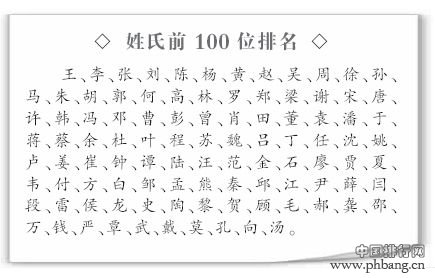 ◇ 姓氏前 100 位排名 ◇
王、李、张、刘、陈、杨、黄、赵、吴、周、徐、孙、
马、朱、胡、郭、何、高、林、罗、郑、梁、谢、宋、唐、
许、韩、冯、邓、曹、彭、曾、肖、田、董、袁、潘、于、
蒋、蔡、余、杜、叶、程、苏、魏、吕、丁、任、沈、姚、
卢、姜、崔、钟、谭、陆、汪、范、金、石、廖、贾、夏、
韦、付、方、白、邹、孟、熊、秦、邱、江、尹、薛、闫、
段、雷、侯、龙、史、陶、黎、贺、顾、毛、郝、龚、邵、
万、钱、严、覃、武、戴、莫、孔、向、汤。
中国排行网
www.phbang.cn